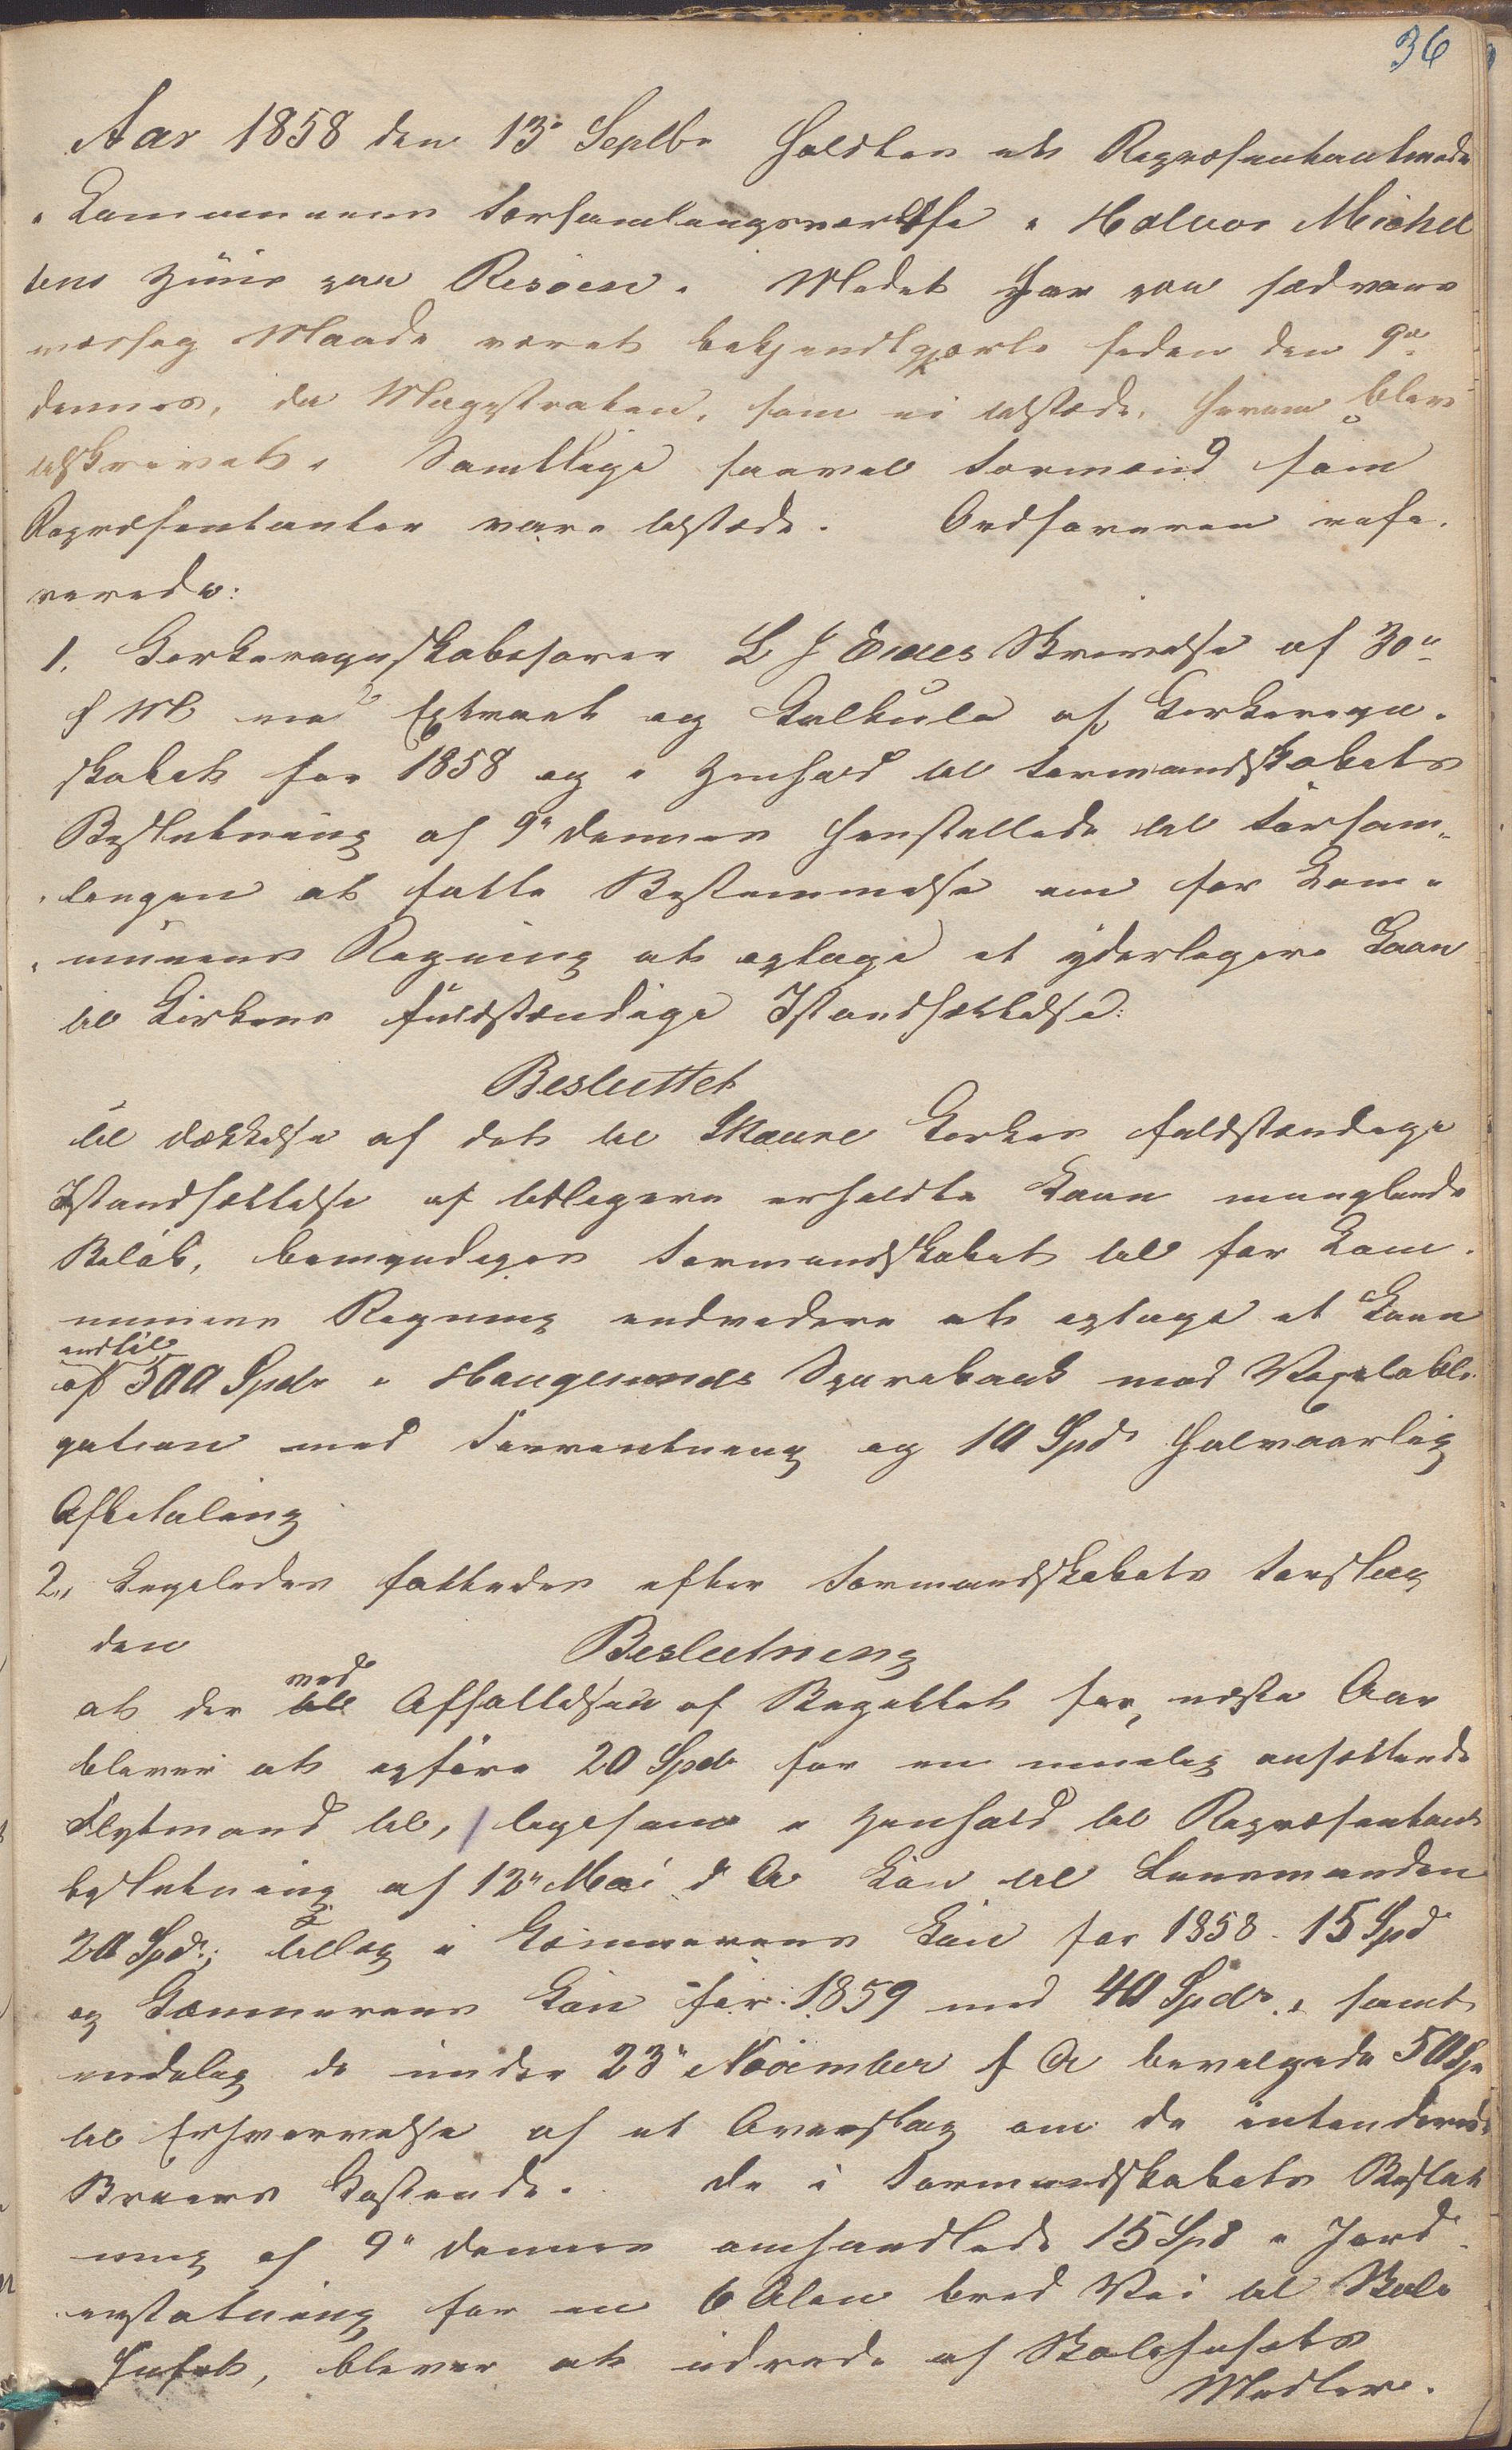 36
Aar 1858 den 13de Septbr holdtes et Repræsentantmøde
i Communens Forsamlingsværelse i Halvor Michel
sens Huus paa Risöen. Mødet har paa sædvans
mæssig Maade været bekjendtgjort siden den 9de
dennes, da Magistraten, som ei tilstede, herom blev
tilskrevet. Samtlige saavel Formænd som
Repræsentanter vare tilstede. Ordføreren refe-
rerede:
1. Kirkeregnskabsfører L J Eides Skrivelse af 30te
f M med Extract og Calkule af Kirkeregn-
skabet for 1858 og i Henhold til Formandskabets
Beslutning af 9de dennes henstillede til Forsam-
lingen at fatte Bestemmelse om for Com-
munens Regning at optage et yderligere Laan
til Kirkens fuldstændige Istandsættelse:
Besluttet
Til Dækkelse af det til Skaare Kirkes fuldstændige
Istandsættelse af tidligere erholdte Laan manglende
Beløb, bemyndiges Formandskabet til for Com-
munens Regning endvidere at optage et Laan
indtil
af 500 Spdr i Haugesunds Sparebank mod Vexelobli-
gation med Forrentning og 10 Spd halvaarlig
Afbetaling
2, Ligeledes fattedes efter Formandskabets Forslag
den Beslutning
ved
at der til Affattelsen af Budgettet for næste Aar
bliver at opføre 20 Spd for en muelig ansættende
Flytmand til, ligesom i Henhold til Repræsentant
beslutning af 12te Mai d A Løn til Lensmanden
20 Spdr; Tillæg i Kæmnerens Løn for 1858 - 15 Spd
og Kæmnerens Løn for 1859 med 40 Spdr, samt
endelig de under 23de November f A bevilgede 50 Sp
til Erhvervelse af et Overslag om de intenderede
Broers Kostende. De i Formandskabets Beslut
ning af 9de dennes omhandlede 15 Spd i Jord-
erstatning for en 6 Alen bred Vei til Skole
huset, bliver at udrede af Skolehusets
Midler.